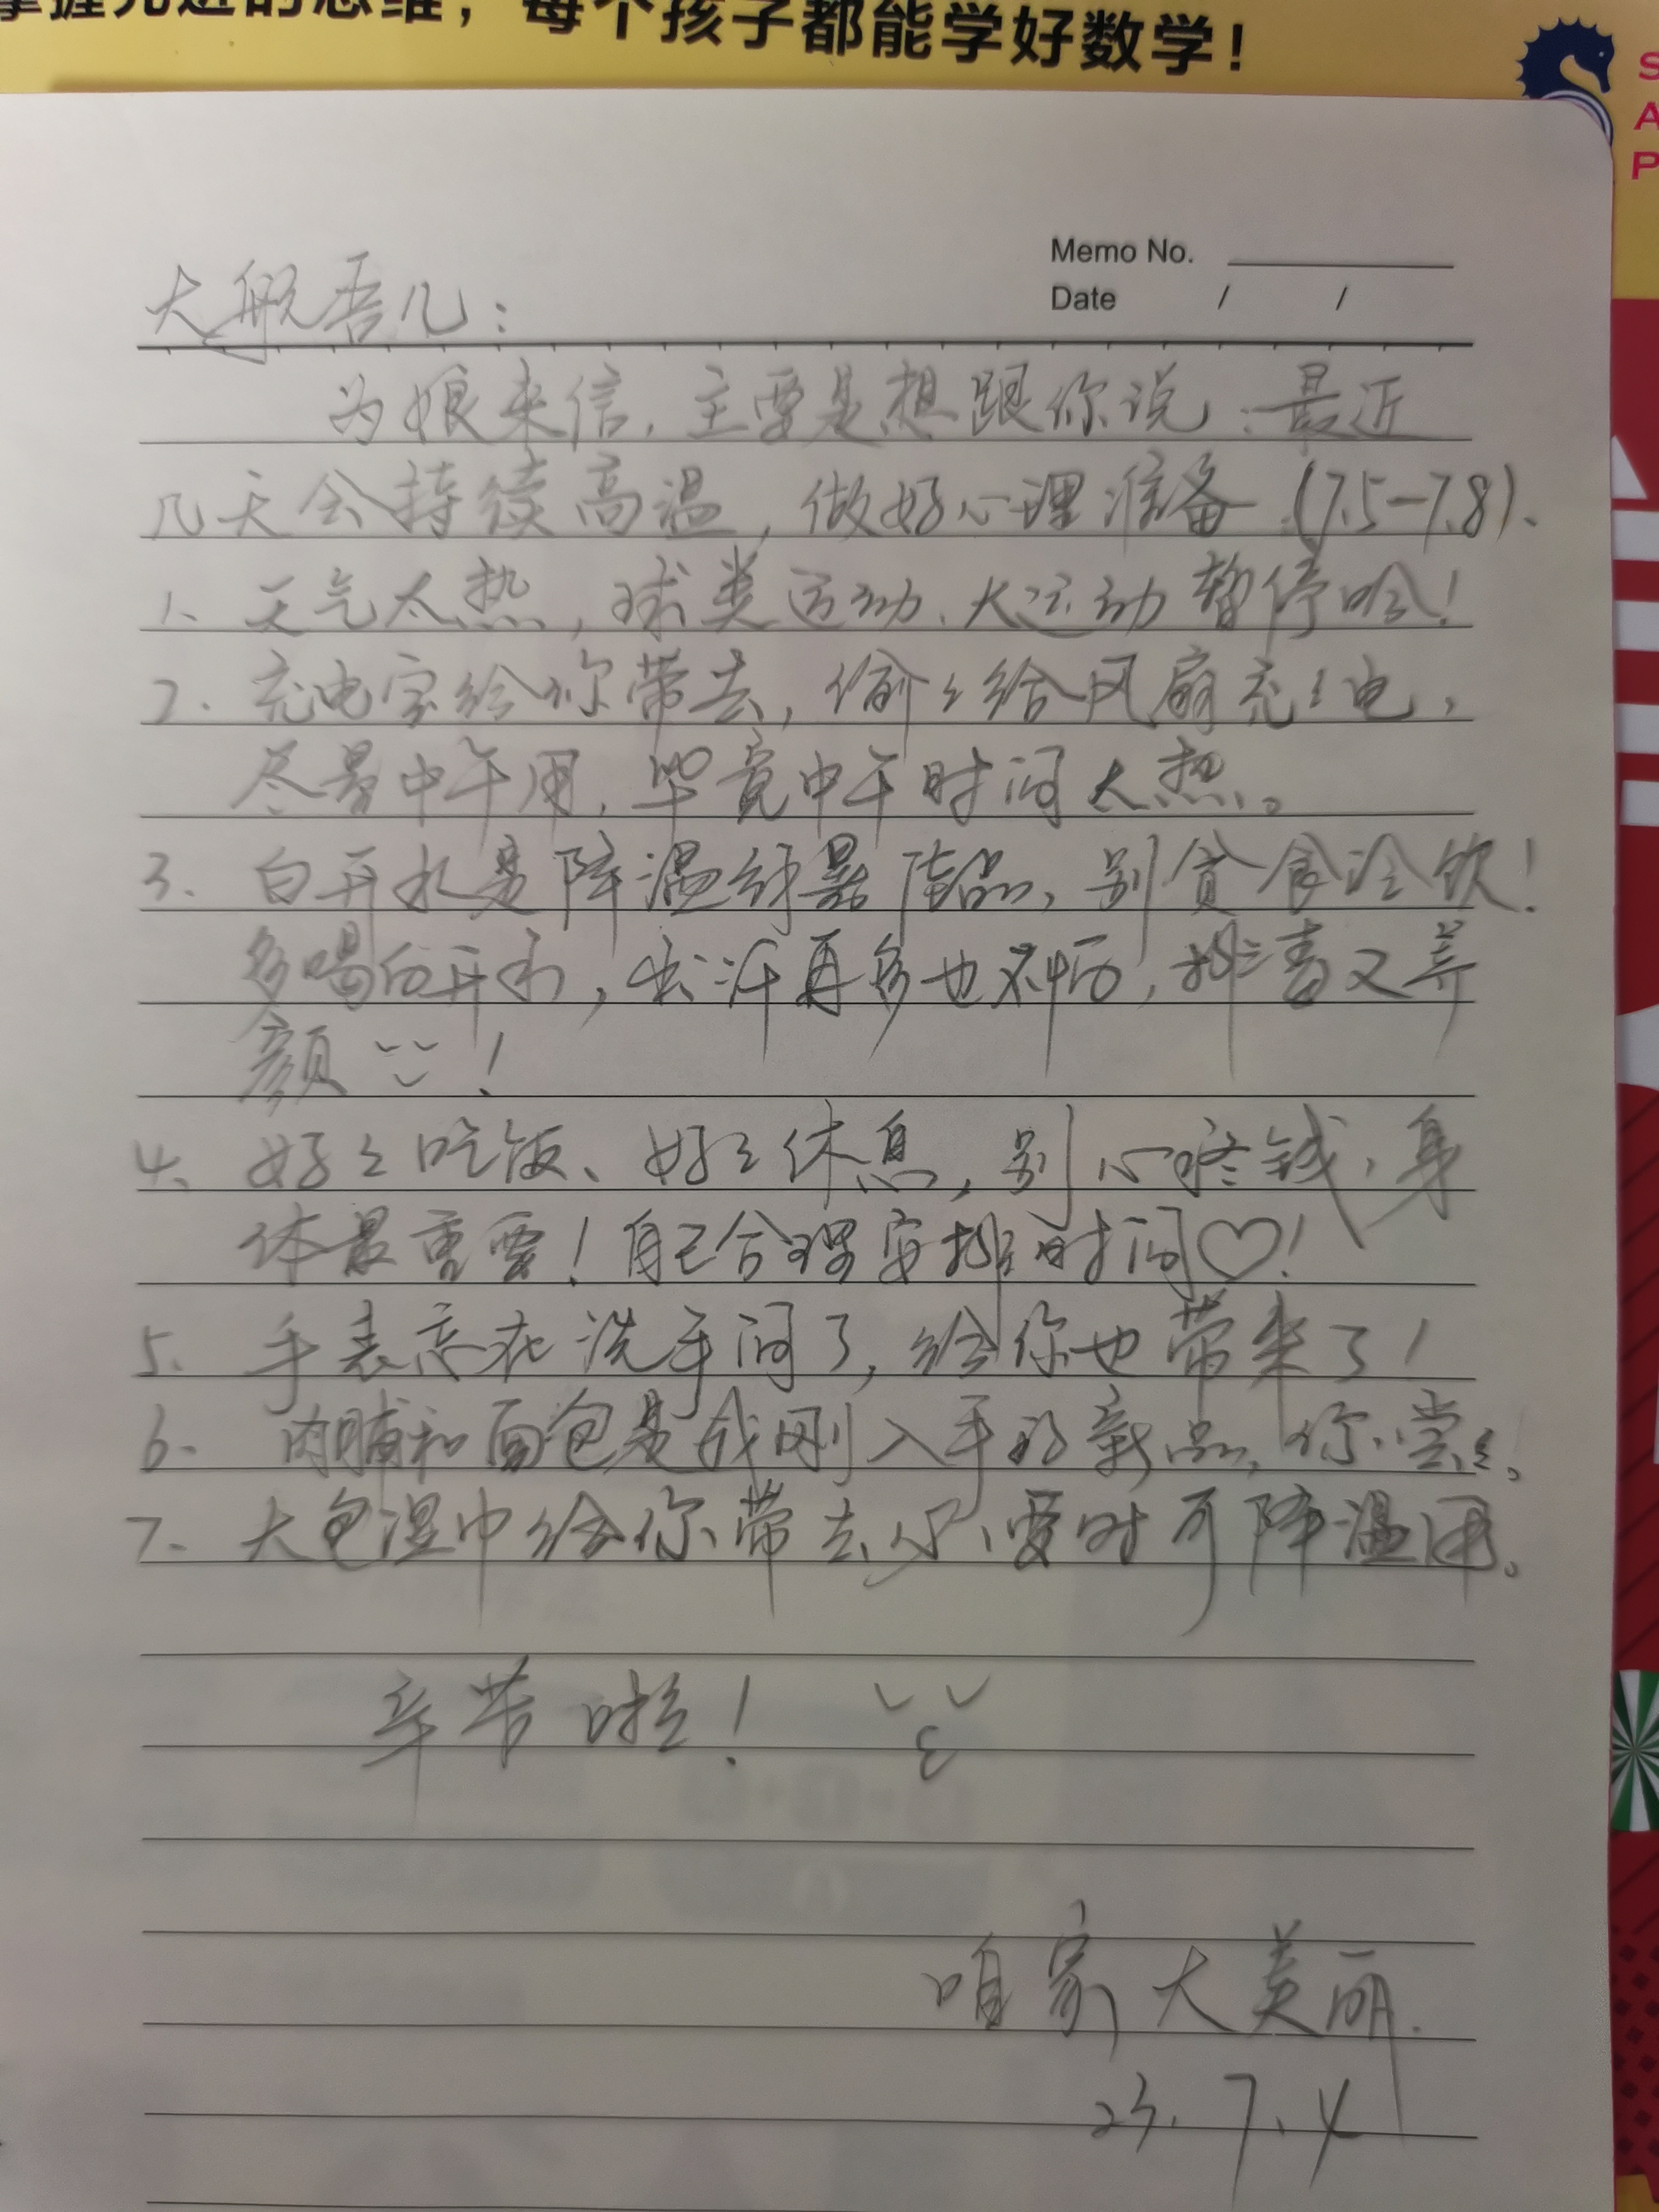 掌握先进的思维，每个孩子都能学好数学！
S
A
P
Memo No.
Date / /
大航吾儿：
为娘来信，主要是想跟你说：最近
几天会持续高温，做好心理准备（7.5－7.8）、
1、天气太热，球类运动、大运动暂停哈！
2．充电宝给你带去，偷々给风扇充々电，
尽量中午用，毕竟中午时间太热。
3、白开水是降温解暑佳品，别贪食冷饮！
多喝白开水，出汗再多也不怕，排毒又养
颜！
4、好々吃饭、好々休息，别心疼钱，身
体最重要！自己合理安排时间♡！
5、手表忘在洗手间了，给你也带来了！
6、肉脯和面包是我刚入手的新品，你尝々。
7、大包湿巾给你带去，必要时可降温用。
辛苦啦！
咱家大美丽．
23．7．4